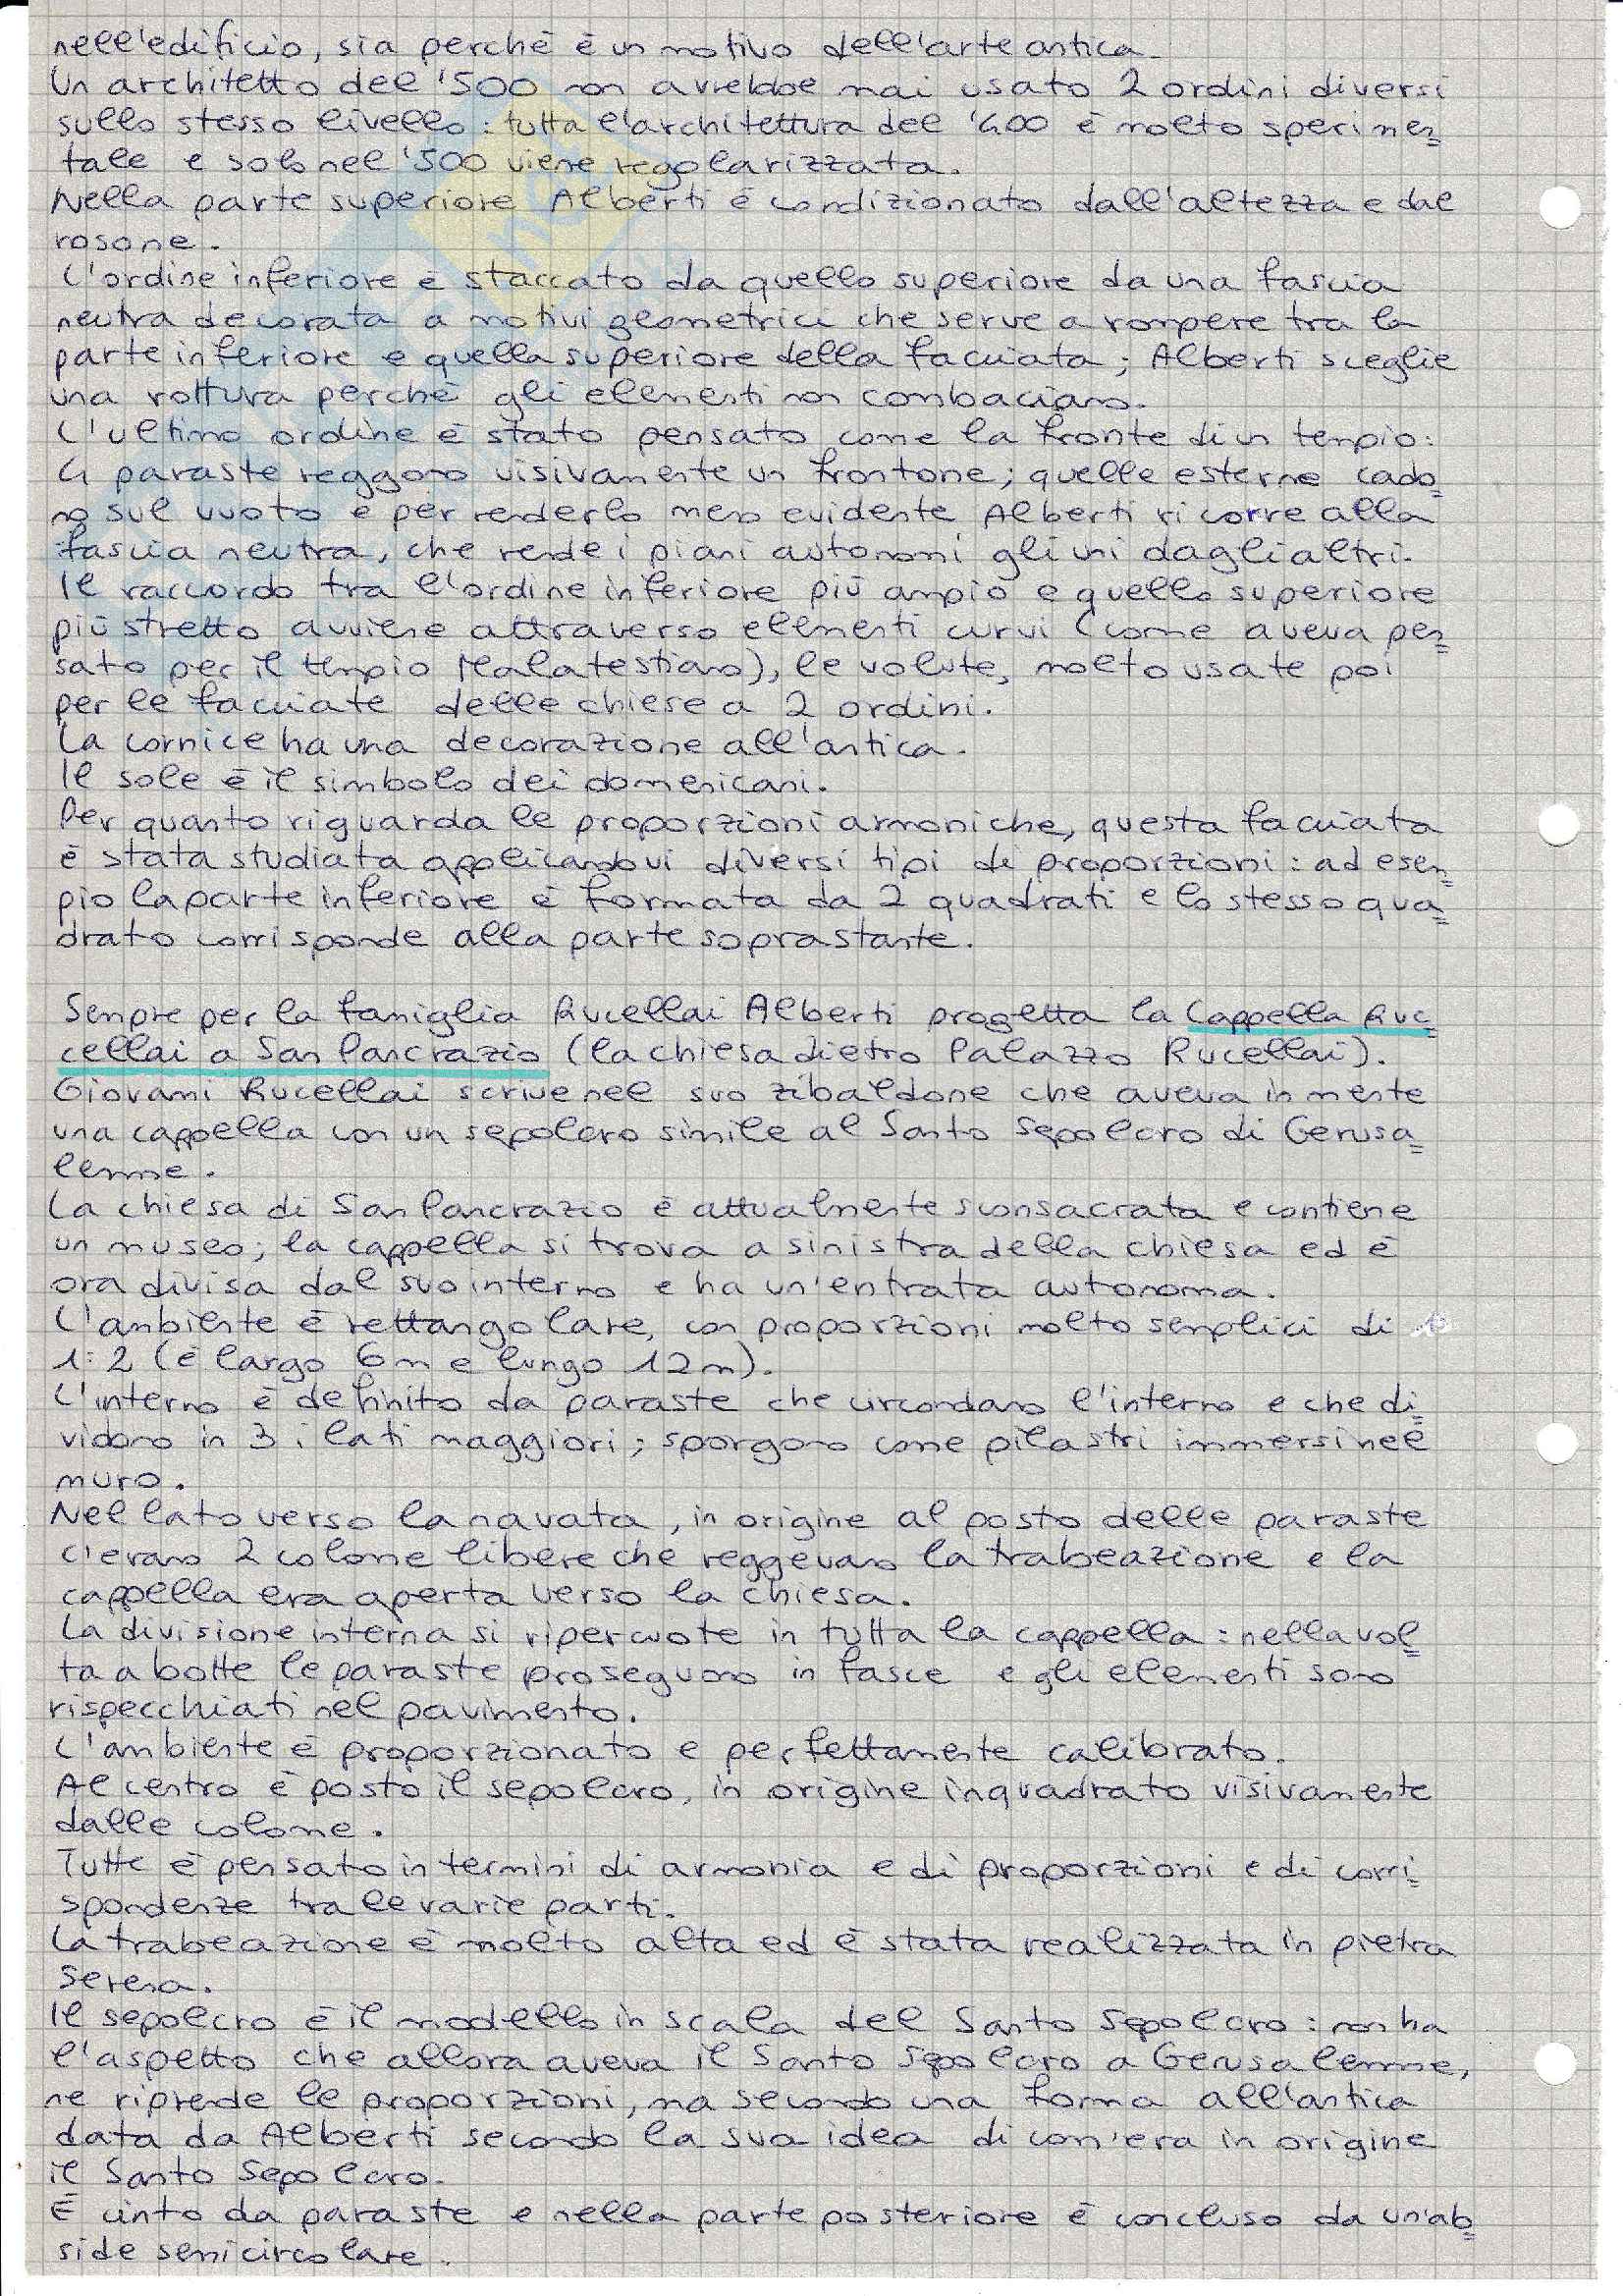 nell'edificio, sia perchè è un motivo dell'arte antica.
Un architetto del '500 non avrebbe mai usato 2 ordini diversi
sullo stesso livello: tutta l'architettura del '400 è molto sperimen=
tale e solo nel '500 viene regolarizzata.
Nella parte superiore Alberti è condizionato dall'altezza e dal
rosone.
L'ordine inferiore è staccato da quello superiore da una fascia
neutra decorata a motivi geometrici che serve a rompere tra la
parte inferiore e quella superiore della facciata; Alberti sceglie
una rottura perchè gli elementi non combaciano.
L'ultimo ordine è stato pensato come la fronte di un tempio:
4 paraste reggono visivamente un frontone; quelle esterne cado=
no sul vuoto e per renderlo meno evidente Alberti ricorre alla
fascia neutra, che rende i piani autonomi gli uni dagli altri.
Il raccordo tra l'ordine inferiore più ampio e quello superiore
più stretto avviene attraverso elementi curvi (come aveva pen=
sato per il tempio Malatestiano), le volute, molto usate poi
per le facciate delle chiese a 2 ordini.
La cornice ha una decorazione all'antica.
Il sole è il simbolo dei domenicani.
Per quanto riguarda le proporzioni armoniche, questa facciata
è stata studiata applicandovi diversi tipi di proporzioni: ad esem=
pio la parte inferiore è formata da 2 quadrati e lo stesso qua=
drato corrisponde alla parte soprastante.
Sempre per la famiglia Rucellai Alberti progetta la Cappella Ruc=
cellai a San Pancrazio (la chiesa dietro Palazzo Rucellai).
Giovanni Rucellai scrive nel suo zibaldone che aveva in mente
una cappella con un sepolcro simile al Santo Sepolcro di Gerusa=
lemme.
La chiesa di San Pancrazio è attualmente sconsacrata e contiene
un museo; la cappella si trova a sinistra della chiesa ed è
ora divisa dal suo interno e ha un'entrata autonoma.
L'ambiente è rettangolare, con proporzioni molto semplici di
1:2 (è largo 6m e lungo 12m).
L'interno è definito da paraste che circondano l'interno e che di=
vidono in 3 i lati maggiori; sporgono come pilastri immersi nel
muro.
Nel lato verso la navata, in origine al posto delle paraste
c'erano 2 colonne libere che reggevano la trabeazione e la
cappella era aperta verso la chiesa.
La divisione interna si ripercuote in tutta la cappella: nella vol=
ta a botte le paraste proseguono in fasce e gli elementi sono
rispecchiati nel pavimento.
L'ambiente è proporzionato e perfettamente calibrato.
Al centro è posto il sepolcro, in origine inquadrato visivamente
dalle colonne.
Tutto è pensato in termini di armonia e di proporzioni e di corri=
spondenze tra le varie parti.
La trabeazione è molto alta ed è stata realizzata in pietra
serena.
Il sepolcro è il modello in scala del Santo Sepolcro: non ha
l'aspetto che allora aveva il Santo Sepolcro a Gerusalemme,
ne riprende le proporzioni, ma secondo una forma all'antica
data da Alberti secondo la sua idea di com'era in origine
il Santo Sepolcro.
È cinto da paraste e nella parte posteriore è concluso da un'ab=
side semicircolare.